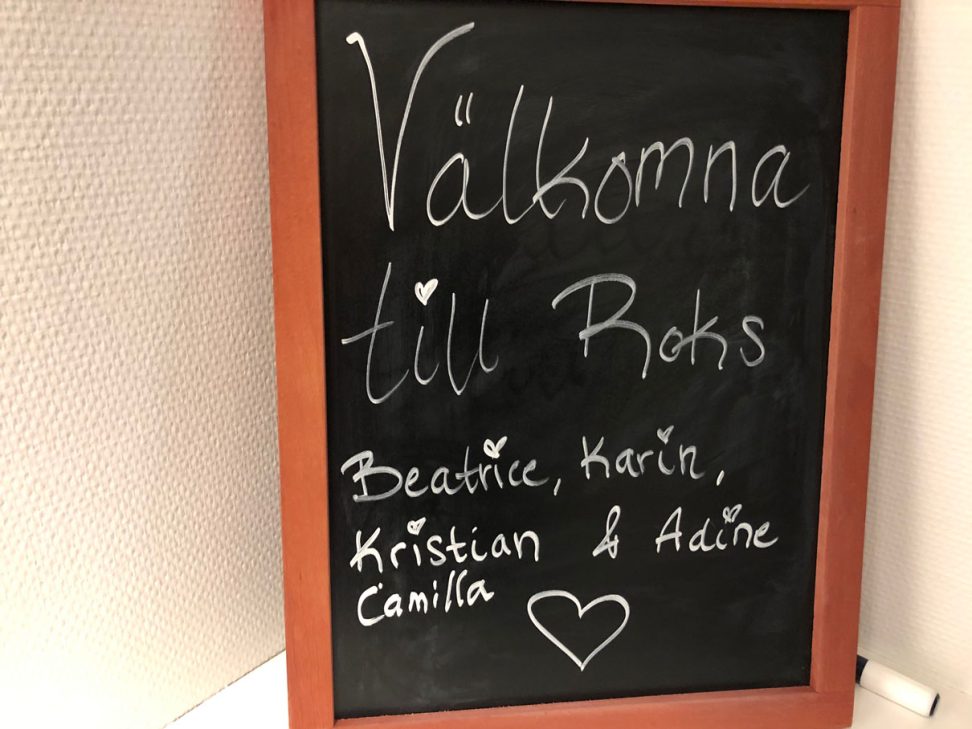 Välkomna
till Roks
Beatrice, Karin,
Kristian & Adine
Camilla